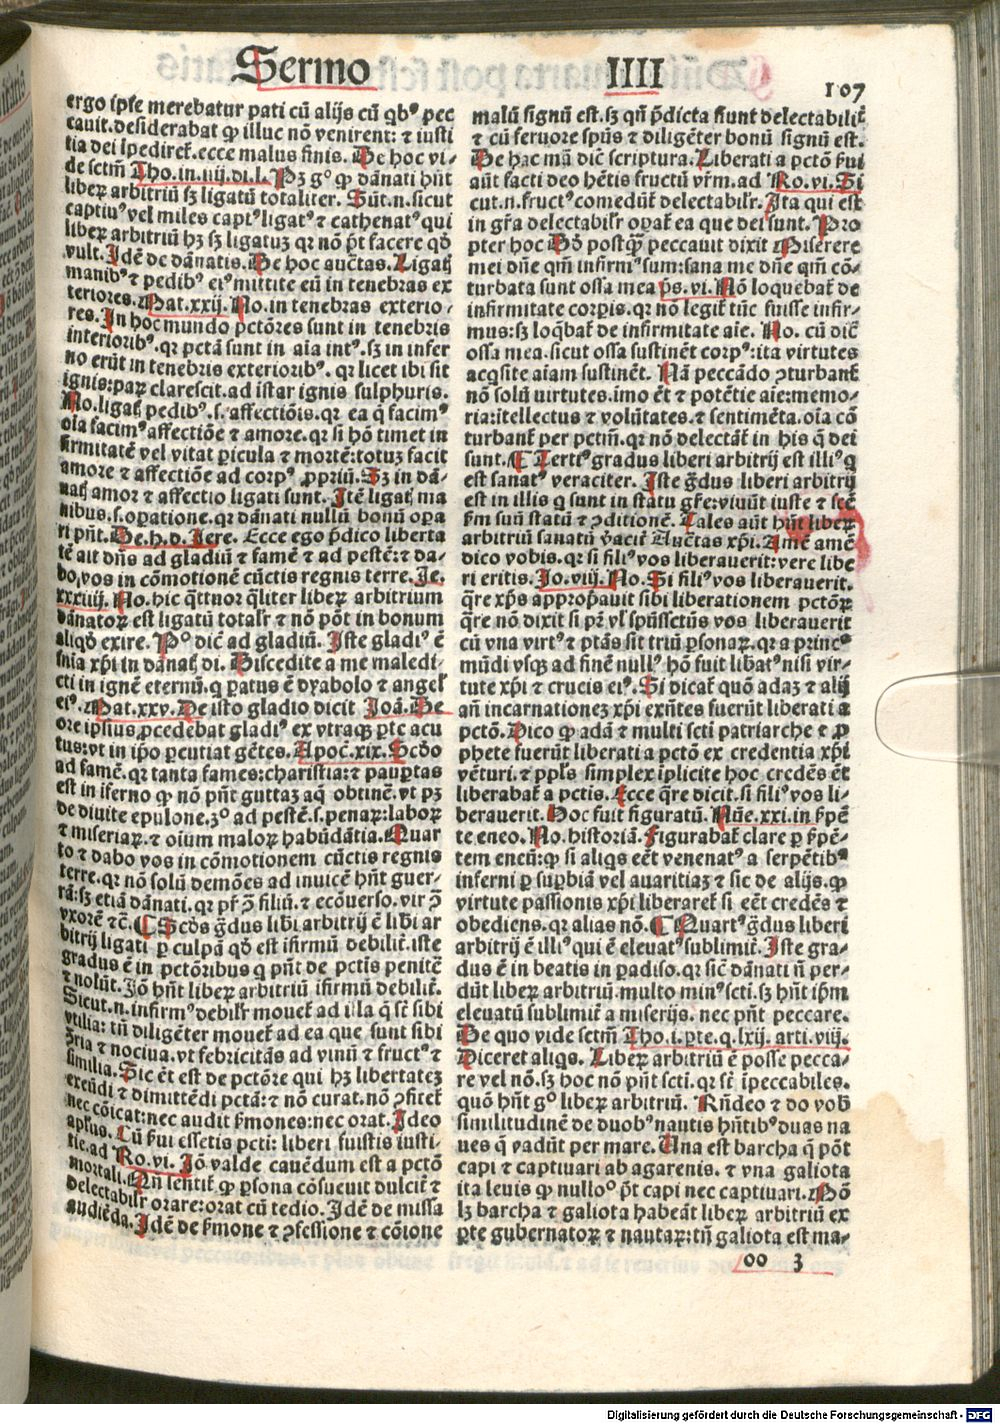 Sermo IIII
107
ergo ipse merebatur pati cū alijs cū qbꝰ pec
cauit.desiderabat ꝙ illuc nō venirent: ⁊ iusti
tia dei ĩpediret̃.ecce malus finis. De hoc vi⸗
de sctm̄ Tho.in.iiij.di.l. Pꝫ gº ꝙ dānati hn̄t
liberꝝ arbitriū sꝫ ligatū totaliter. Sūt.n.sicut
captiuꝰ vel miles captꝰ ligatꝰ ⁊ cathenatꝰ qui
liberꝝ arbitriū hꝫ sꝫ ligatuꝫ qr nō pōt facere qd̄
vult. Idē ē de dānatis. De hoc auctas. Ligatꝭ
manibꝰ ⁊ pedibꝰ eiꝰ mittite eū in tenebras ex
teriores. Mat.xxij. No. in tenebras exterio⸗
res. In hoc mundo pctōres sunt in tenebris
interioribꝰ.qr pctā sunt in aīa intꝰ.sꝫ in infer
no erūt in tenebris exterioribꝰ. qr licet ibi sit
ignis:parꝝ clarescit.ad istar ignis sulphuris.
No.ligatꝭ pedibꝰ.s.affectiōis.qr ea q̄ facimꝰ
oīa facimꝰ affectiōe ⁊ amore.qr si hō timet in
firmitatē vel vitat pericula ⁊ mortē:totuꝫ facit
amore ⁊ affectiōe ad corpꝰ ꝓpriū. Sꝫ in dā⸗
natꝭ amor ⁊ affectio ligati sunt. Itē ligatꝭ ma
nibus.s.oꝑatione.qr dānati nullū bonū oꝑa
ri pn̄t. De.h.d.Jere. Ecce ego p̄dico liberta
tē ait dn̄s ad gladiū ⁊ famē ⁊ ad pestē:⁊ da⸗
bo vos in cōmotionē cūctis regnis terre. Je.
xxxiiij. No.hic q̄ttuor q̄liter liberꝝ arbitrium
dānatoꝝ est ligatū totalr̄ ⁊ nō pōt in bonum
aliqd̄ exire. Pº dic̄ ad gladiū. Iste gladiꝰ ē
snīa xp̄i in dānatꝭ di. Discedite a me maledi⸗
cti in ignē eternū.q ꝑatus ē dyabolo ⁊ angel̄
eiꝰ. Mat.xxv. De isto gladio dicit Joā. De
ore ipsius ꝓcedebat gladiꝰ ex vtraqꝫ ꝑte acu
tus:vt in ip̄o percutiat gētes. Apoc̄.xix. Scd̄o
ad famē. qr tanta fames:charistia:⁊ pauꝑtas
est in īferno ꝙ nō pn̄t guttaꝫ aq̄ obtinē.vt pꝫ
de diuite epulone.3º ad pestē.s.penaꝝ:laboꝝ
⁊ miseriaꝝ.⁊ oīum maloꝝ habūdātia. Quar
to ⁊ dabo vos in cōmotionem cūctis regnis
terre.qr nō solū demōes ad inuicē hn̄t guer⸗
rā:sꝫ etiā dānati.qr pr̄ ꝯ filiū.⁊ ecōuerso.vir ꝯ
vxorē ⁊c̄. ¶ Scd̄s gd̄us libi arbitrij ē lib̄i ar
bitrij ligati ꝑ culpā qd̄ est īfirmū debilit̄.iste
gradus ē in pctōribus q̄ pn̄t de pctis penitē
⁊ nolūt. Iō hn̄t liberꝝ arbitriū īfirmū debilit̄.
Sicut.n.infirmꝰ debilr̄ mouet̃ ad illa q̄ st̄ sibi
vtilia: tn̄ diligēter mouet̃ ad ea que sunt sibi
ꝯria ⁊ nociua.vt febricitās ad vinū ⁊ fructꝰ ⁊
similia. Sic ēt est de pctōre qui hꝫ libertateꝫ
exeūdi ⁊ dimittēdi pctā:⁊ nō curat.nō ꝯfitet̃
nec cōicat:nec audit ẜmones:nec orat. Ideo
apl̄us. Cū ẜui essetis pcti: liberi fuistis iusti⸗
tie.ad Ro.vi. Iō valde cauēdum est a pctō
mortali. Qn̄ sentit̃ ꝙ ꝑsona cōsueuit dulcit̄ ⁊
delectabilr̄ orare:orat cū tedio. Idē de missa
audiēda. Idē de ẜmone ⁊ ꝯfessione ⁊ cōione
malū signū est.sꝫ qn̄ p̄dicta fiunt delectabilit̄
⁊ cū feruore spūs ⁊ diligēter bonū signū est.
De hac mā dic̄ scriptura. Liberati a pctō ẜui
aūt facti deo hētis fructū vr̄m.ad Ro.vi. Si
cut.n.fructꝰ comedūt̃ delectabilr̄. Ita qui est
in gr̄a delectabilr̄ oꝑat̃ ea que dei sunt. Pro
pter hoc Dd̄ postq̄ꝫ peccauit dixit Miserere
mei dn̄e qm̄ infirmꝰ sum:sana me dn̄e qm̄ cō⸗
turbata sunt ossa mea ps̄.vi. Nō loquebat̃ de
infirmitate corpis.qr nō legit̃ tūc fuisse infir⸗
mus:sꝫ loq̄bat̃ de infirmitate aīe. No. cū dic̄
ossa mea.sicut ossa sustinēt corpꝰ:ita virtutes
acq̄site aīam sustinēt. Nā peccādo ꝯturbant̃
nō solū virtutes.imo ēt ⁊ potētie aīe:memo⸗
ria:ītellectus ⁊ volūtates.⁊ sentimēta.oīa cō
turbant̃ per pctm̄.qr nō delectāt̃ in his q̄ dei
sunt. ¶ Tertiꝰ gradus liberi arbitrij est illiꝰ q
est sanatꝰ veraciter. Iste gd̄us liberi arbitrij
est in illis q sunt in statu gr̄e:viuūt iuste ⁊ scē
ẜm suū statū ⁊ ꝯditionē. Tales aūt hn̄t liberꝝ
arbitriū sanatū v̄acit̄ Auctas xp̄i. Amē amē
dico vobis.qr si filiꝰ vos liberauerit:vere libe
ri eritis. Jo.viij. No. Si filiꝰ vos liberauerit.
q̄re xp̄s appropauit sibi liberationem pctōꝝ
q̄re nō dixit si pr̄ vl̄ spūssctūs vos liberauerit
cū vna virtꝰ ⁊ ptās sit triū ꝑsonaꝝ.qr a princº
mūdi vsqꝫ ad finē nullꝰ hō fuit lib̄atꝰ nisi vir⸗
tute xp̄i ⁊ crucis eiꝰ. Si dicat̃ quō adaꝫ ⁊ alij
an̄ incarnationeꝫ xp̄i exn̄tes fuerūt liberati a
pctō. Dico ꝙ adā ⁊ multi scti patriarche ⁊ ꝓ
phete fuerūt liberati a pctō ex credentia xp̄i
vēturi.⁊ ppl̄s simplex īplicite hoc credēs ēt
liberabat̃ a pctis. Ecce q̄re dicit.si filiꝰ vos li⸗
berauerit. Hoc fuit figuratū. Nūe.xxi.in ẜpē
te eneo. No.historiā. Figurabat̃ clare ꝑ ẜpē⸗
tem eneū:ꝙ si aliqs eēt venenatꝰ a serpētibꝰ
inferni ꝑ suꝑbiā vel auaritiaꝫ ⁊ sic de alijs.ꝙ
virtute passionis xp̄i liberaret̃ si eēt credēs ⁊
obediens.qr alias nō. ¶ Quartꝰ gd̄us liberi
arbitrij ē illiꝰ qui ē eleuatꝰ sublimit̄. Iste gra⸗
dus ē in beatis in padiso.qr sic̄ dānati n̄ per⸗
dūt liberꝝ arbitriū.multo minꝰ scti.sꝫ hn̄t ip̄m
eleuatū sublimit̄ a miserijs.nec pn̄t peccare.
De quo vide sctm̄ Tho.i.pte.q.lxij.arti.viij.
Diceret aliqs. Liberꝝ arbitriū ē posse pecca⸗
re vel nō.sꝫ hoc nō pn̄t scti.qr st̄ īpeccabiles.
quō hn̄t gº liberꝝ arbitriū. Rn̄deo ⁊ do vob̄
similitudinē de duobꝰ nautis hn̄tibꝰ duas na
ues q̄ vadūt per mare. Una est barcha q̄ pōt
capi ⁊ captiuari ab agarenis.⁊ vna galiota
ita leuis ꝙ nulloº pōt capi nec captiuari. Mō
lꝫ barcha ⁊ galiota habeāt liberꝝ arbitriū ex
ꝑte gubernatoꝝ ⁊ nautaꝝ:tn̄ galiota est ma⸗
oo 3
Digitalisierung gefördert durch die Deutsche Forschungsgemeinschaft - DFG